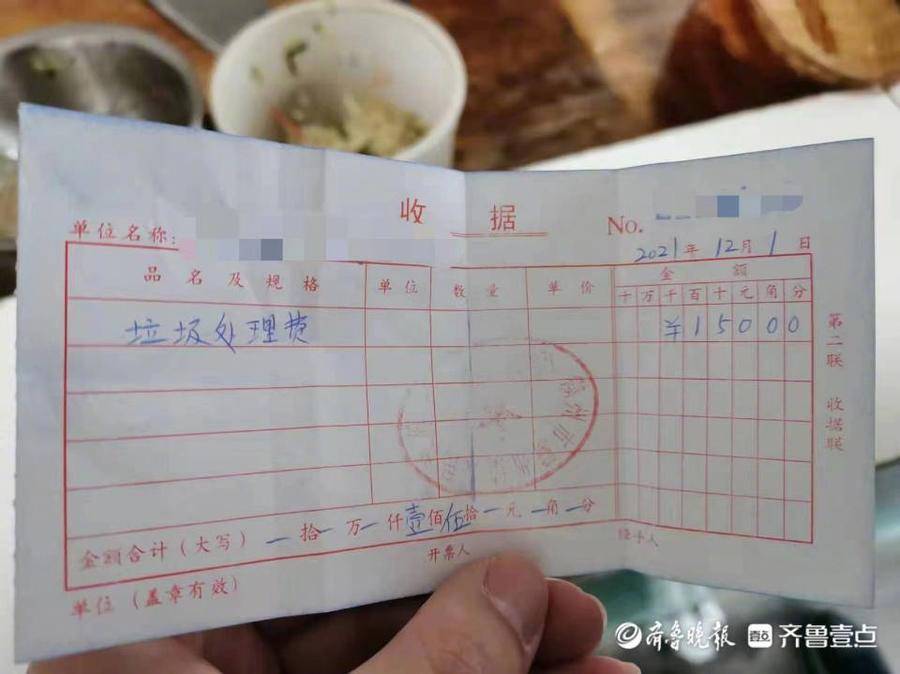 收 据
No.
单位名称:
2021年12月1日
品名及规格 单位 数量 单价 金额
十万千百十元角分
垃圾处理费 ¥15000
第二联 收据联
金额合计（大写）一拾一万一仟壹佰伍拾一元一角一分
开票人 经手人
单位（盖章有效）
齐鲁晚报 齐鲁壹点